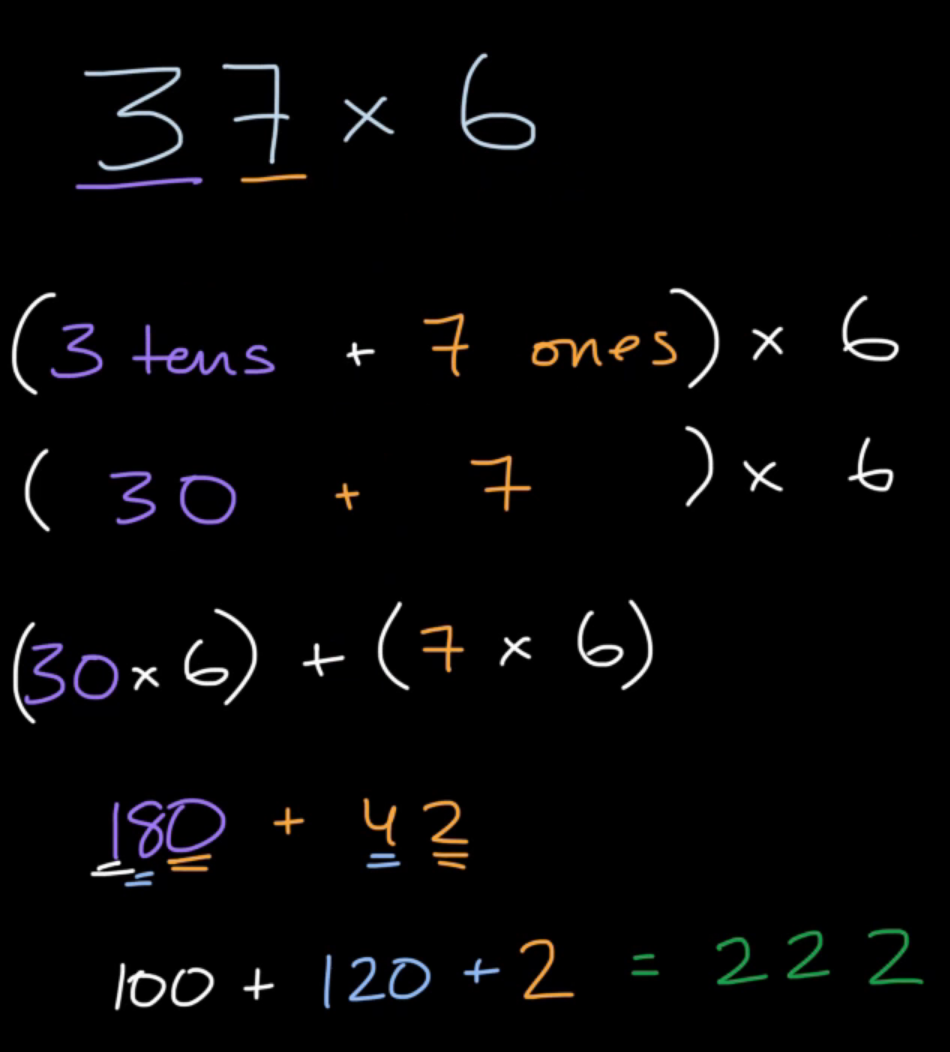 37 × 6
(3 tens + 7 ones) × 6
( 30 + 7 ) × 6
(30 × 6) + (7 × 6)
180 + 42
100 + 120 + 2 = 222